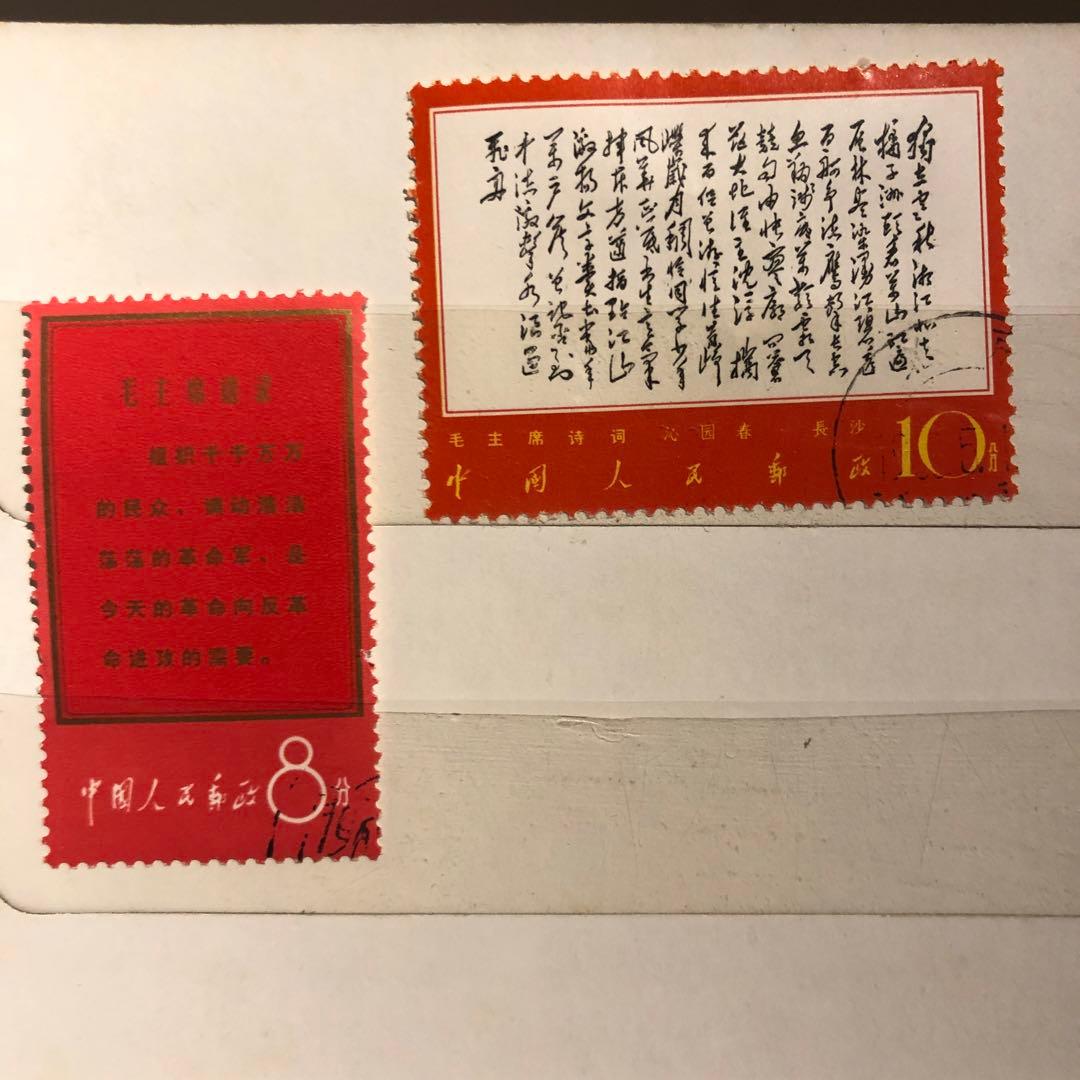 毛主席语录
组织千千万万
的民众，调动浩浩
荡荡的革命军，是
今天的革命向反革
命进攻的需要。
中国人民郵政8分
獨立寒秋湘江北去
橘子洲头看万山红遍
层林尽染漫江碧透
百舸争流鹰击长空
鱼翔浅底万类霜天
竞自由怅寥廓问苍
茫大地谁主沈浮 携
来百侣曾游忆往昔峥
嵘岁月稠恰同学少年
风华正茂书生意气
挥斥方遒指点江山
激扬文字粪土当年
万户侯曾记否到
中流击水浪遏
飛舟
毛主席诗词 沁园春 長沙
中国人民郵政10分